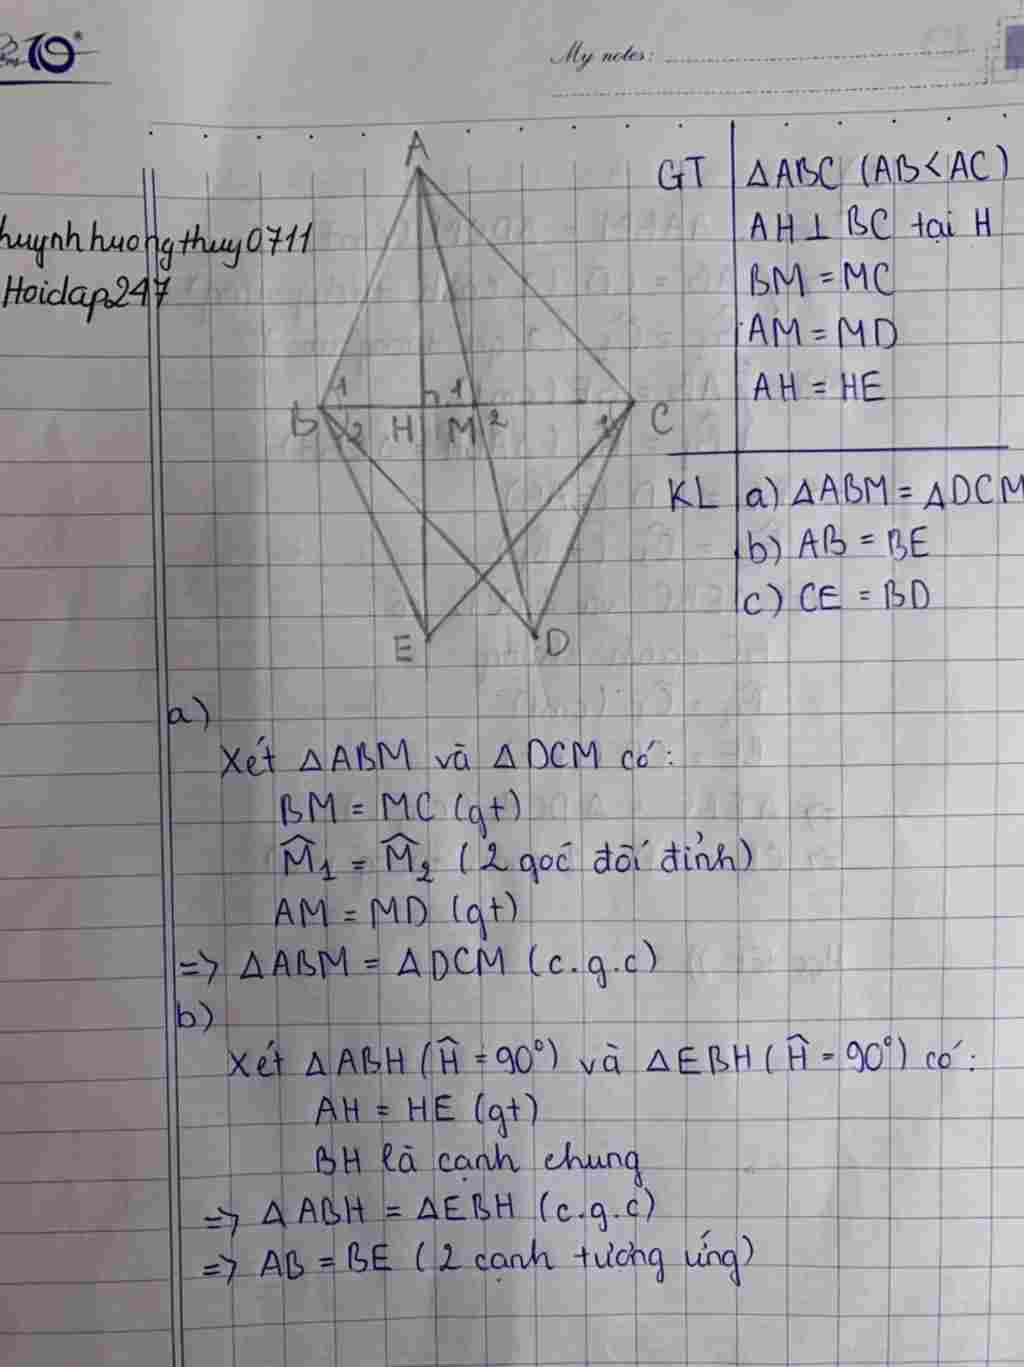 My notes:
huynhhuongthuy0711
Hoidap247
A
B 1 2 H M 1 2 C
E D
GT ΔABC (AB<AC)
AH⊥BC tại H
BM = MC
AM = MD
AH = HE
KL a) ΔABM = ΔDCM
b) AB = BE
c) CE = BD
a)
Xét ΔABM và ΔDCM có:
BM = MC (gt)
M̂₁ = M̂₂ (2 góc đối đỉnh)
AM = MD (gt)
=> ΔABM = ΔDCM (c.g.c)
b)
Xét ΔABH (Ĥ = 90°) và ΔEBH (Ĥ = 90°) có:
AH = HE (gt)
BH là cạnh chung
=> ΔABH = ΔEBH (c.g.c)
=> AB = BE (2 cạnh tương ứng)